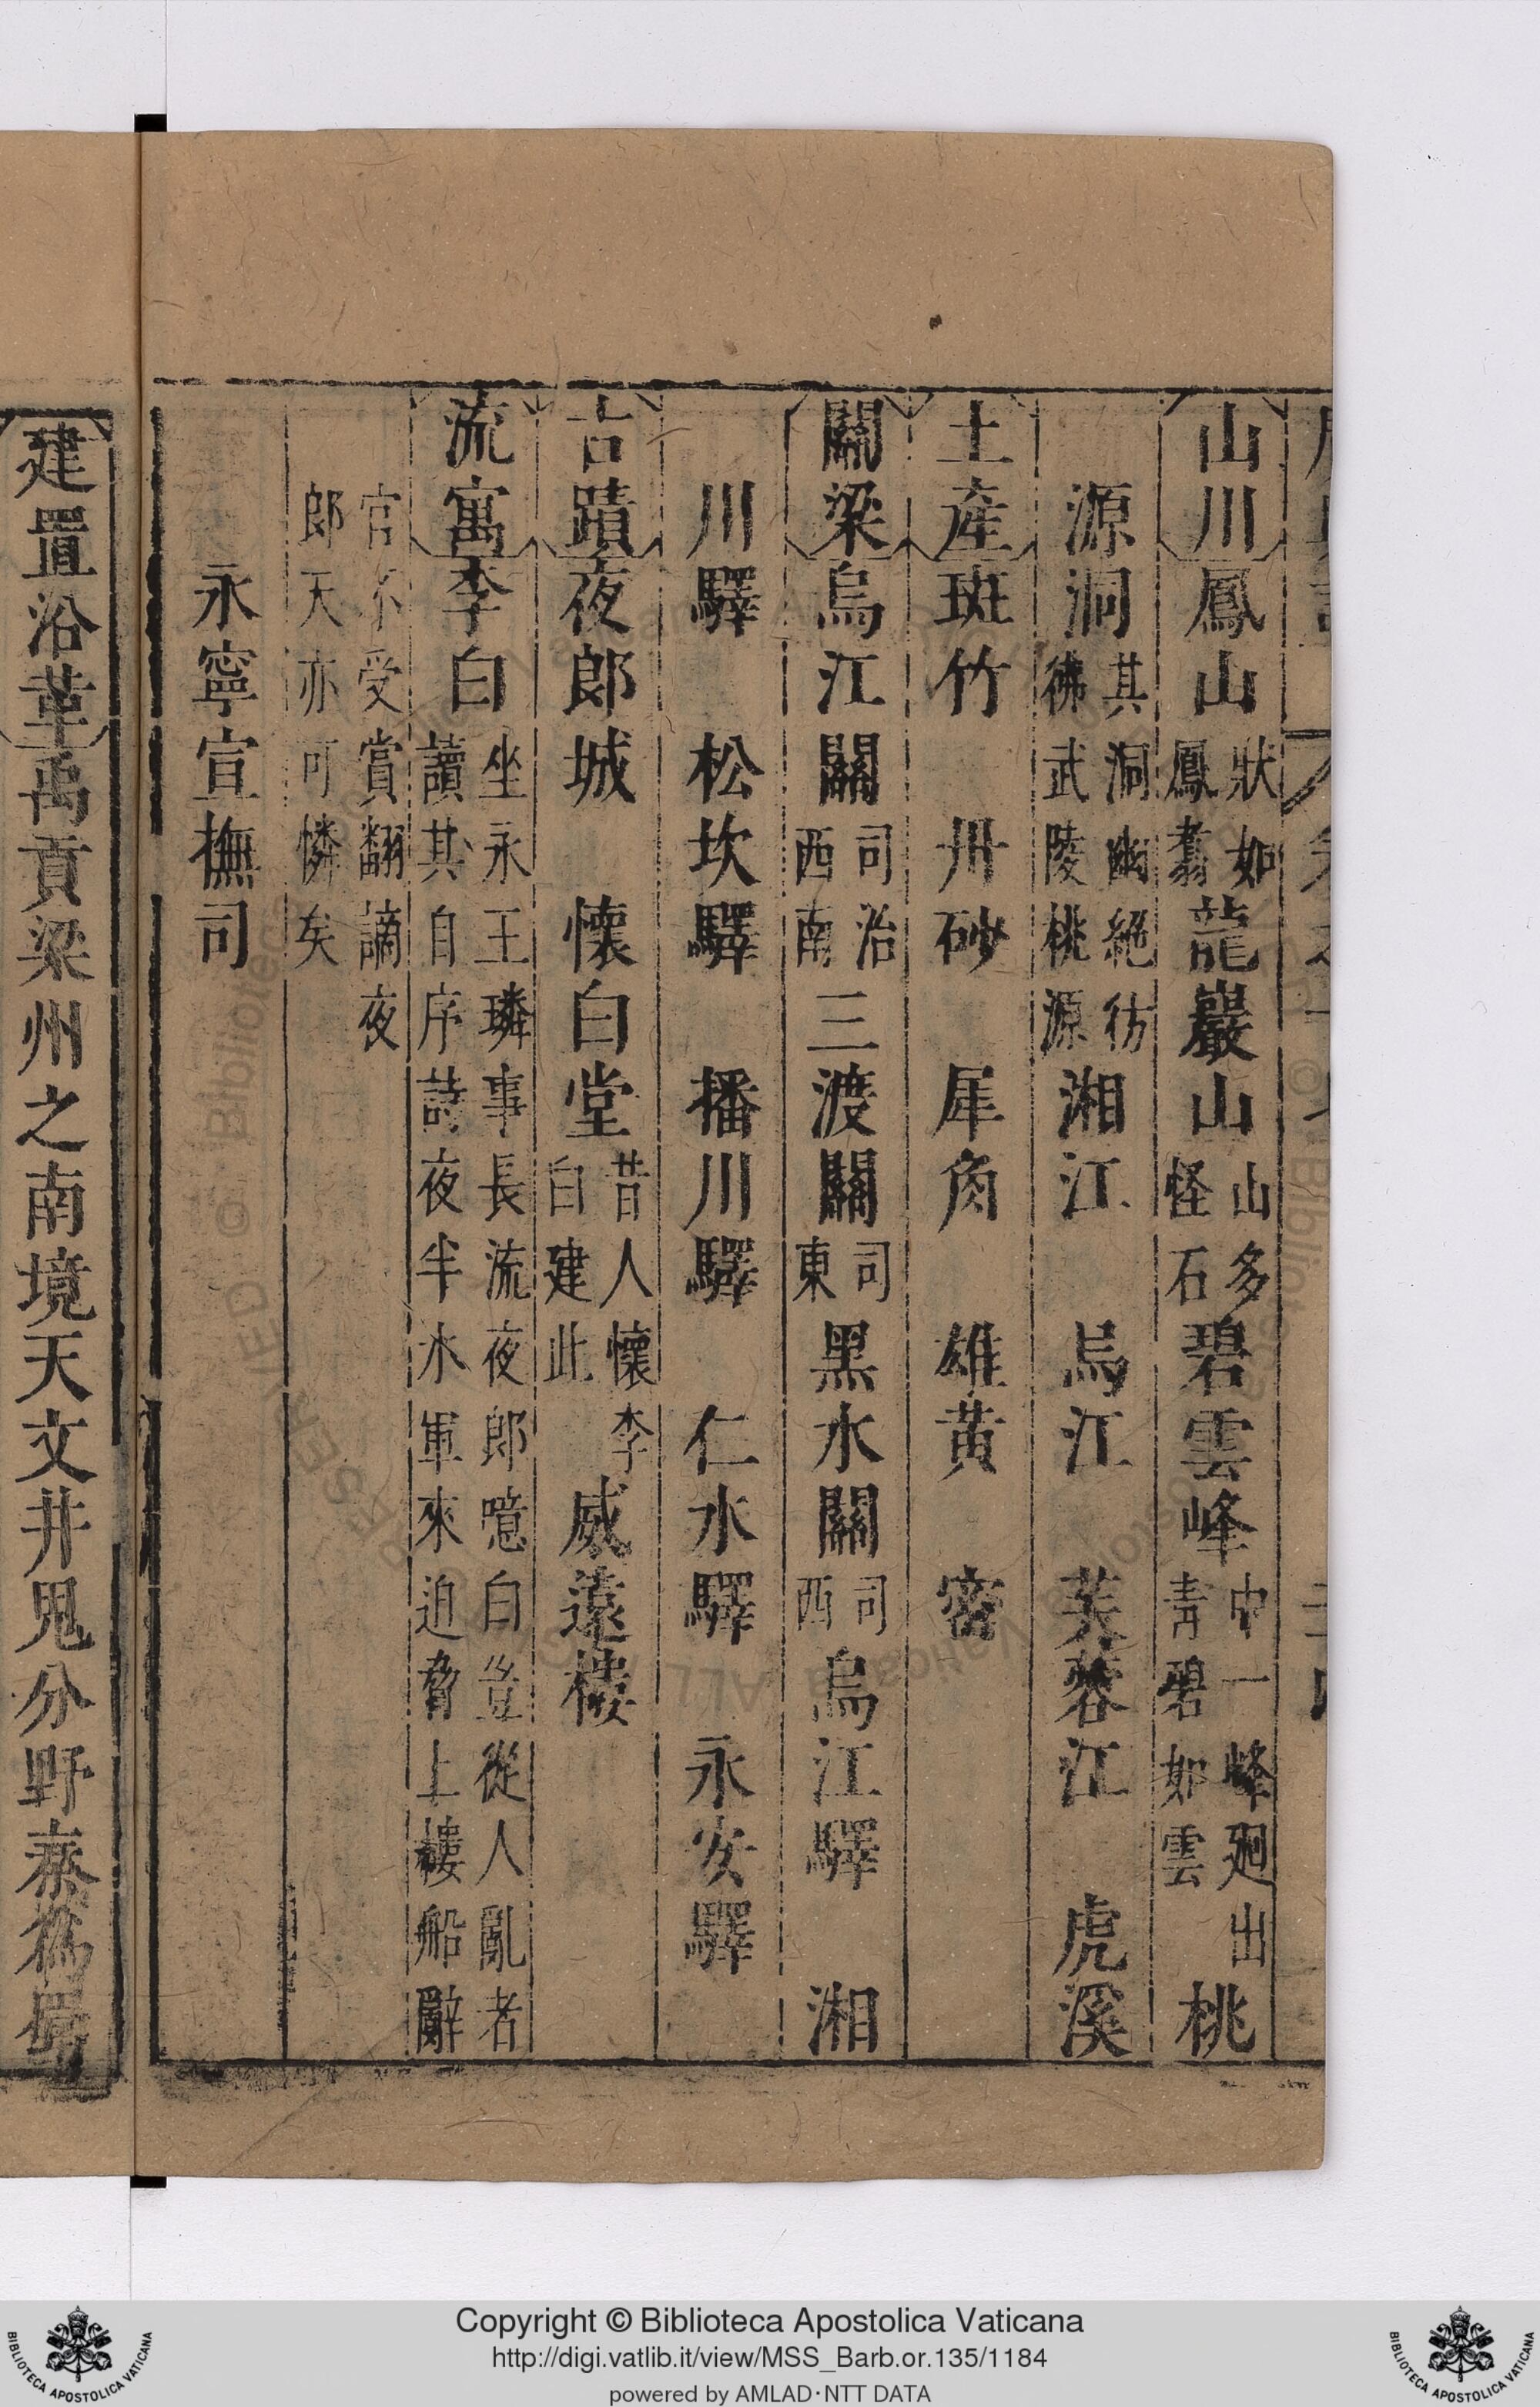 山川鳳山狀如鳳翥龍巖山山多怪石碧雲峰中一峰廻出青碧如雲桃
源洞其洞幽絕彷彿武陵桃源湘江 烏江 芙蓉江 虎溪
土產斑竹 丹砂 犀角 雄黃 蜜
關梁烏江關司治西南三渡關司東黑水關司西烏江驛 湘
川驛 松坎驛 播川驛 仁水驛 永安驛
古蹟夜郎城 懷白堂昔人懷李白建此威遠樓
流寓李白坐永王璘事長流夜郎噫白豈從人亂者讀其自序詩夜半水軍來迫脅上樓船辭
官不受賞翻謫夜郎天亦可憐矣
永寧宣撫司
建置沿革禹貢梁州之南境天文井鬼分野秦為蜀
Copyright © Biblioteca Apostolica Vaticana
http://digi.vatlib.it/view/MSS_Barb.or.135/1184
powered by AMLAD·NTT DATA
BIBLIOTECA APOSTOLICA VATICANA
BIBLIOTECA APOSTOLICA VATICANA